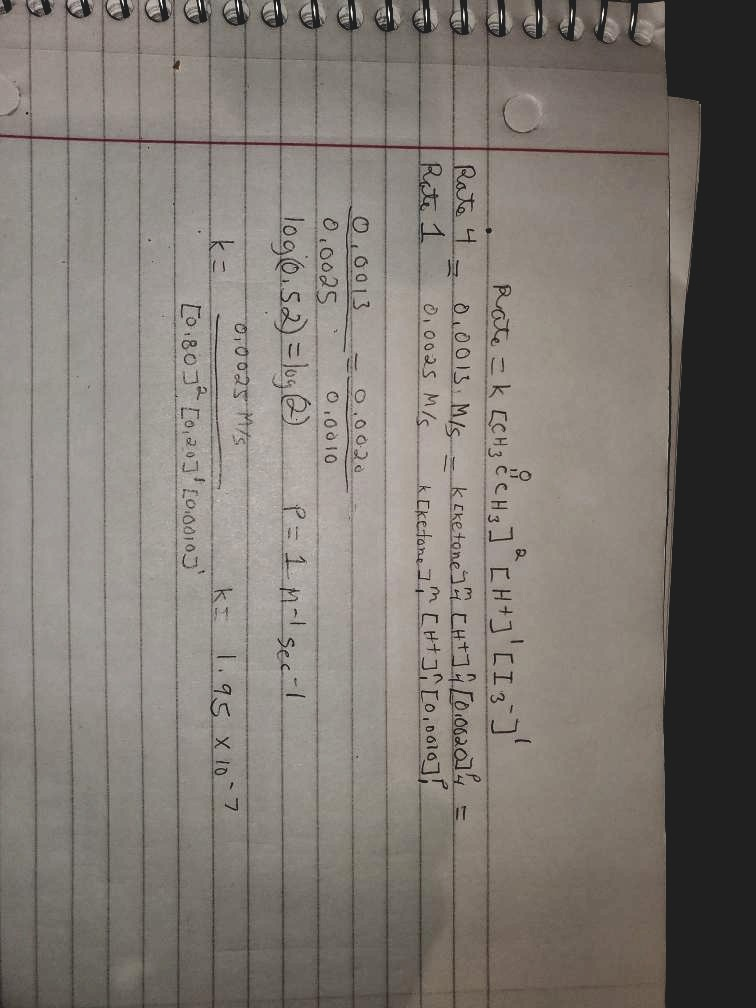 O
Rate = k [CH3CCH3]2 [H+]1 [I3-]1
Rate 4 = 0.0013 M/s = k[ketone]4m [H+]4n [0.0020]4p =
Rate 1 0.0025 M/s k[ketone]1m [H+]1n [0.0010]1p
0.0013 = 0.0020
0.0025 0.0010
log(0.52) = log(2) P = 1 M-1 sec-1
k = 0.0025 M/s k = 1.95 x 10-7
[0.80]2 [0.20]1 [0.0010]1